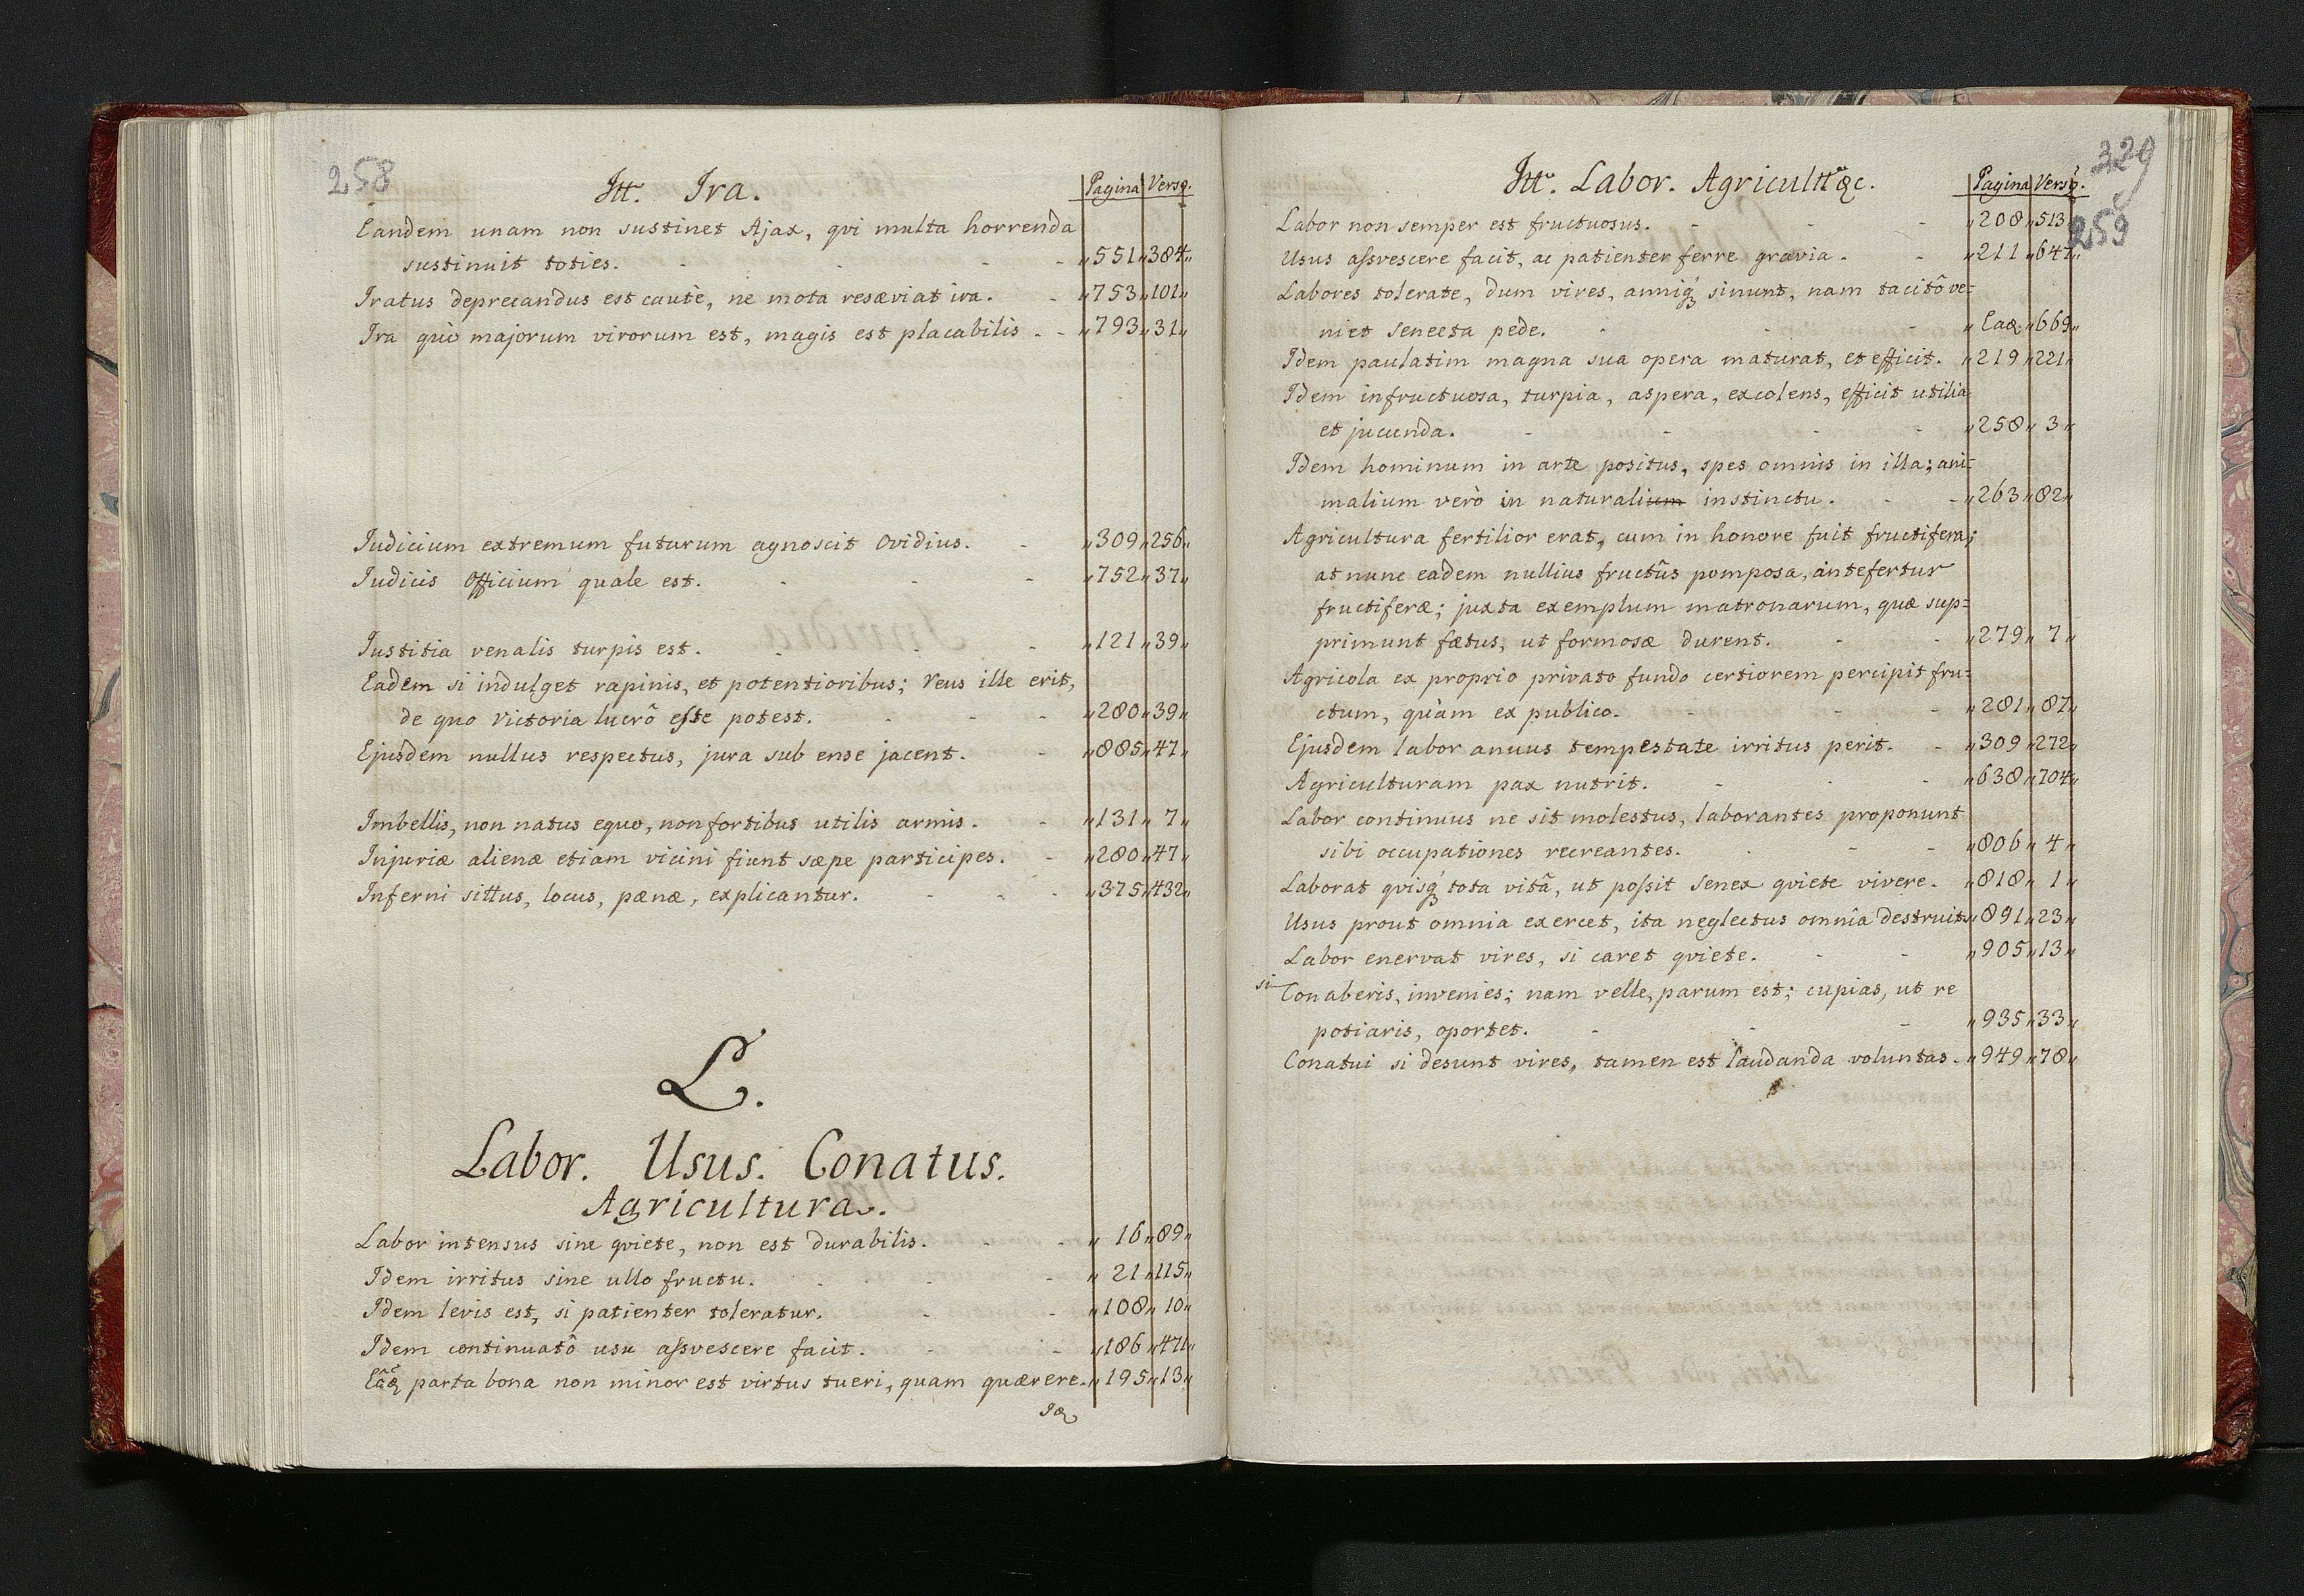 258
Itt. Ira.
Pagina Versq.
Eandem unam non sustinet Ajax, qvi multa horrenda
sustinuit toties. - - - - „551„384„
Iratus deprecandus est cautè, ne mota resæviat ira. - „753„101„
Ira quò majorum virorum est, magis est placabilis - - „793„31„
Iudicium extremum futurum agnoscit Ovidius. - „309„256„
Iudicis Officium quale est. - - - „752„37„
Iustitia venalis turpis est. - - - „121„39„
Eadem si indulget rapinis, et potentioribus; reus ille erit,
de quo victoria lucrô esse potest. - - - „280„39„
Ejusdem nullus respectus, jura sub ense jacent. - „885„47„
Imbellis, non natus equo, non fortibus utilis armis. - „131„ 7„
Injuriæ alienæ etiam vicini fiunt sæpe participes. - „280„47„
Inferni sittus, locus, pænæ, explicantur. - - - „375„432„
L.
Labor. Usus. Conatus.
Agricultura.
Labor intensus sine qviete, non est durabilis. - - „ 16„89„
Idem irritus sine ullo fructu. - - - „ 21„115„
Idem levis est, si patienter toleratur. - - „108„ 10„
Idem continuatô usu assvescere facit. - - „186„471„
parta bona non minor est virtus tueri, quam quærere. „195„13„
329
259
Itt. Labor. Agricultt &c.
Pagina Versq.
Labor non semper est fructuosus. - - - „208„513„
Usus assvescere facit, ac patienter ferre gravia. - „211„647„
Labores tolerate, dum vires, anniq; sinunt, nam tacitô ve=
niet senecta pede. - - - „ Eaq. „669„
Idem paulatim magna sua opera maturat, et efficit. „219„221„
Idem infructuosa, turpia, aspera, excolens, efficit utilia
et jucunda. - - - - „258„ 3„
Idem hominum in arte positus, spes omnis in illa; ani=
malium verò in naturalium instinctu. - - „263„82„
Agricultura fertilior erat, cum in honore fuit fructifera;
at nunc eadem nullius fructûs pomposa, antefertur
fructiferæ; juxta exemplum matronarum, quæ sup=
primunt fætus, ut formosæ durent. - - „279„ 7„
Agricola ex proprio privato fundo certiorem percipit fru=
ctum, quàm ex publico. - - - „281„87„
Ejusdem labor anuus tempestate irritus perit. - „309„272„
Agriculturam pax nutrit. - - - „638„704„
Labor continuus ne sit molestus, laborantes proponunt
sibi occupationes recreantes. - - - „806„ 4„
Laborat qvisq; tota vitâ, ut possit senex qviete vivere. „818„ 1„
Usus prout omnia exercet, ita neglectus omnia destruit. „891„23„
Labor enervat vires, si caret qviete. - - „905„13„
si Conaberis, invenies; nam velle, parum est; cupias, ut re
potiaris, oportet. - - - „935„33„
Conatui si desunt vires, tamen est laudanda voluntas. „949„78„